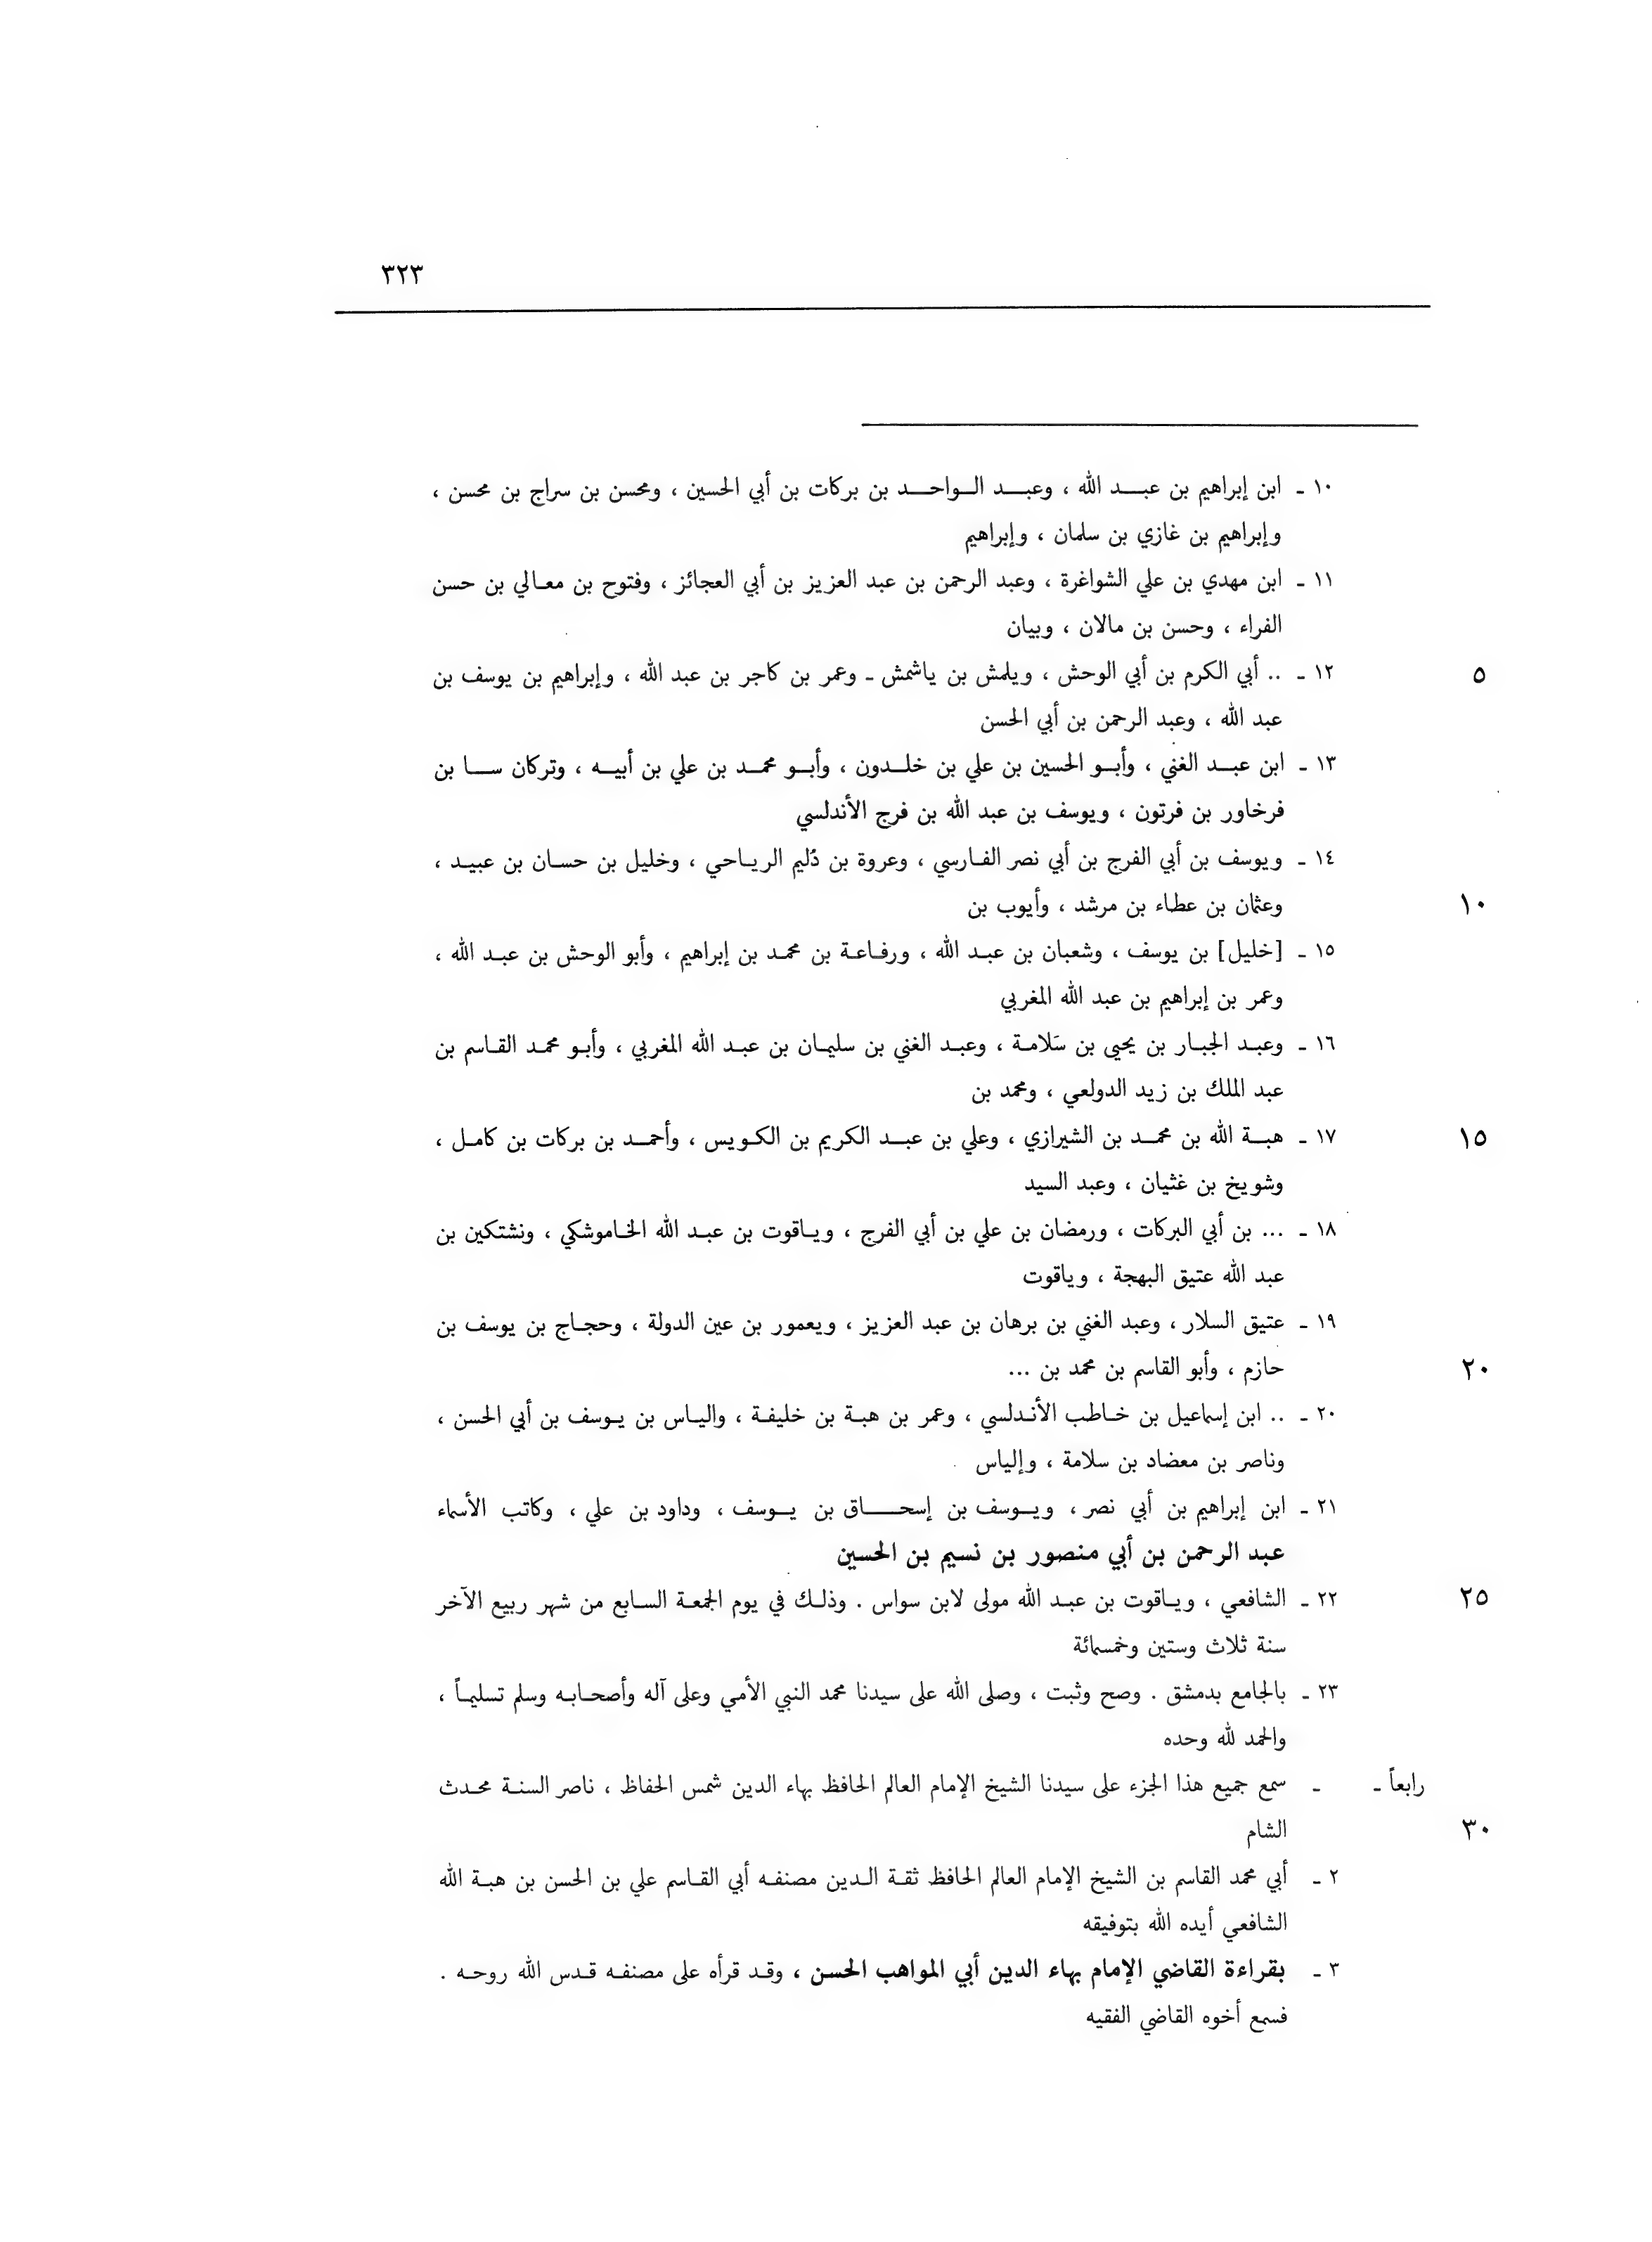 ٣٢٣
١٠ ـ ابن إبراهيم بن عبد الله ، وعبد الواحد بن بركات بن أبي الحسين ، ومحسن بن سراج بن محسن ،
وإبراهيم بن غازي بن سلمان ، وإبراهيم
١١ ـ ابن مهدي بن علي الشواغرة ، وعبد الرحمن بن عبد العزيز بن أبي العجائز ، وفتوح بن معالي بن حسن
الفراء ، وحسن بن مالان ، وبيان
٥ ١٢ ـ .. أبي الكرم بن أبي الوحش ، ويلمش بن ياشمش ـ وعمر بن كاجر بن عبد الله ، وإبراهيم بن يوسف بن
عبد الله ، وعبد الرحمن بن أبي الحسن
١٣ ـ ابن عبد الغني ، وأبو الحسين بن علي بن خلدون ، وأبو محمد بن علي بن أبيه ، وتركان سا بن
فرخاور بن فرتون ، ويوسف بن عبد الله بن فرج الأندلسي
١٤ ـ ويوسف بن أبي الفرج بن أبي نصر الفارسي ، وعروة بن دُليم الرياحي ، وخليل بن حسان بن عبيد ،
١٠ وعثمان بن عطاء بن مرشد ، وأيوب بن
١٥ ـ [خليل] بن يوسف ، وشعبان بن عبد الله ، ورفاعة بن محمد بن إبراهيم ، وأبو الوحش بن عبد الله ،
وعمر بن إبراهيم بن عبد الله المغربي
١٦ ـ وعبد الجبار بن يحيى بن سَلامة ، وعبد الغني بن سليمان بن عبد الله المغربي ، وأبو محمد القاسم بن
عبد الملك بن زيد الدولعي ، ومحمد بن
١٥ ١٧ ـ هبة الله بن محمد بن الشيرازي ، وعلي بن عبد الكريم بن الكويس ، وأحمد بن بركات بن كامل ،
وشويخ بن غثيان ، وعبد السيد
١٨ ـ ... بن أبي البركات ، ورمضان بن علي بن أبي الفرج ، وياقوت بن عبد الله الخاموشكي ، ونشتكين بن
عبد الله عتيق البهجة ، وياقوت
١٩ ـ عتيق السلار ، وعبد الغني بن برهان بن عبد العزيز ، ويعمور بن عين الدولة ، وحجاج بن يوسف بن
٢٠ حازم ، وأبو القاسم بن محمد بن ...
٢٠ ـ .. ابن إسماعيل بن خاطب الأندلسي ، وعمر بن هبة بن خليفة ، والياس بن يوسف بن أبي الحسن ،
وناصر بن معضاد بن سلامة ، وإلياس
٢١ ـ ابن إبراهيم بن أبي نصر ، ويوسف بن إسحاق بن يوسف ، وداود بن علي ، وكاتب الأسماء
عبد الرحمن بن أبي منصور بن نسيم بن الحسين
٢٥ ٢٢ ـ الشافعي ، وياقوت بن عبد الله مولى لابن سواس . وذلك في يوم الجمعة السابع من شهر ربيع الآخر
سنة ثلاث وستين وخمسمائة
٢٣ ـ بالجامع بدمشق . وصح وثبت ، وصلى الله على سيدنا محمد النبي الأمي وعلى آله وأصحابه وسلم تسليماً ،
والحمد لله وحده
رابعاً ـ ـ سمع جميع هذا الجزء على سيدنا الشيخ الإمام العالم الحافظ بهاء الدين شمس الحفاظ ، ناصر السنة محدث
٣٠ الشام
٢ ـ أبي محمد القاسم بن الشيخ الإمام العالم الحافظ ثقة الدين مصنفه أبي القاسم علي بن الحسن بن هبة الله
الشافعي أيده الله بتوفيقه
٣ ـ بقراءة القاضي الإمام بهاء الدين أبي المواهب الحسن ، وقد قرأه على مصنفه قدس الله روحه .
فسمع أخوه القاضي الفقيه